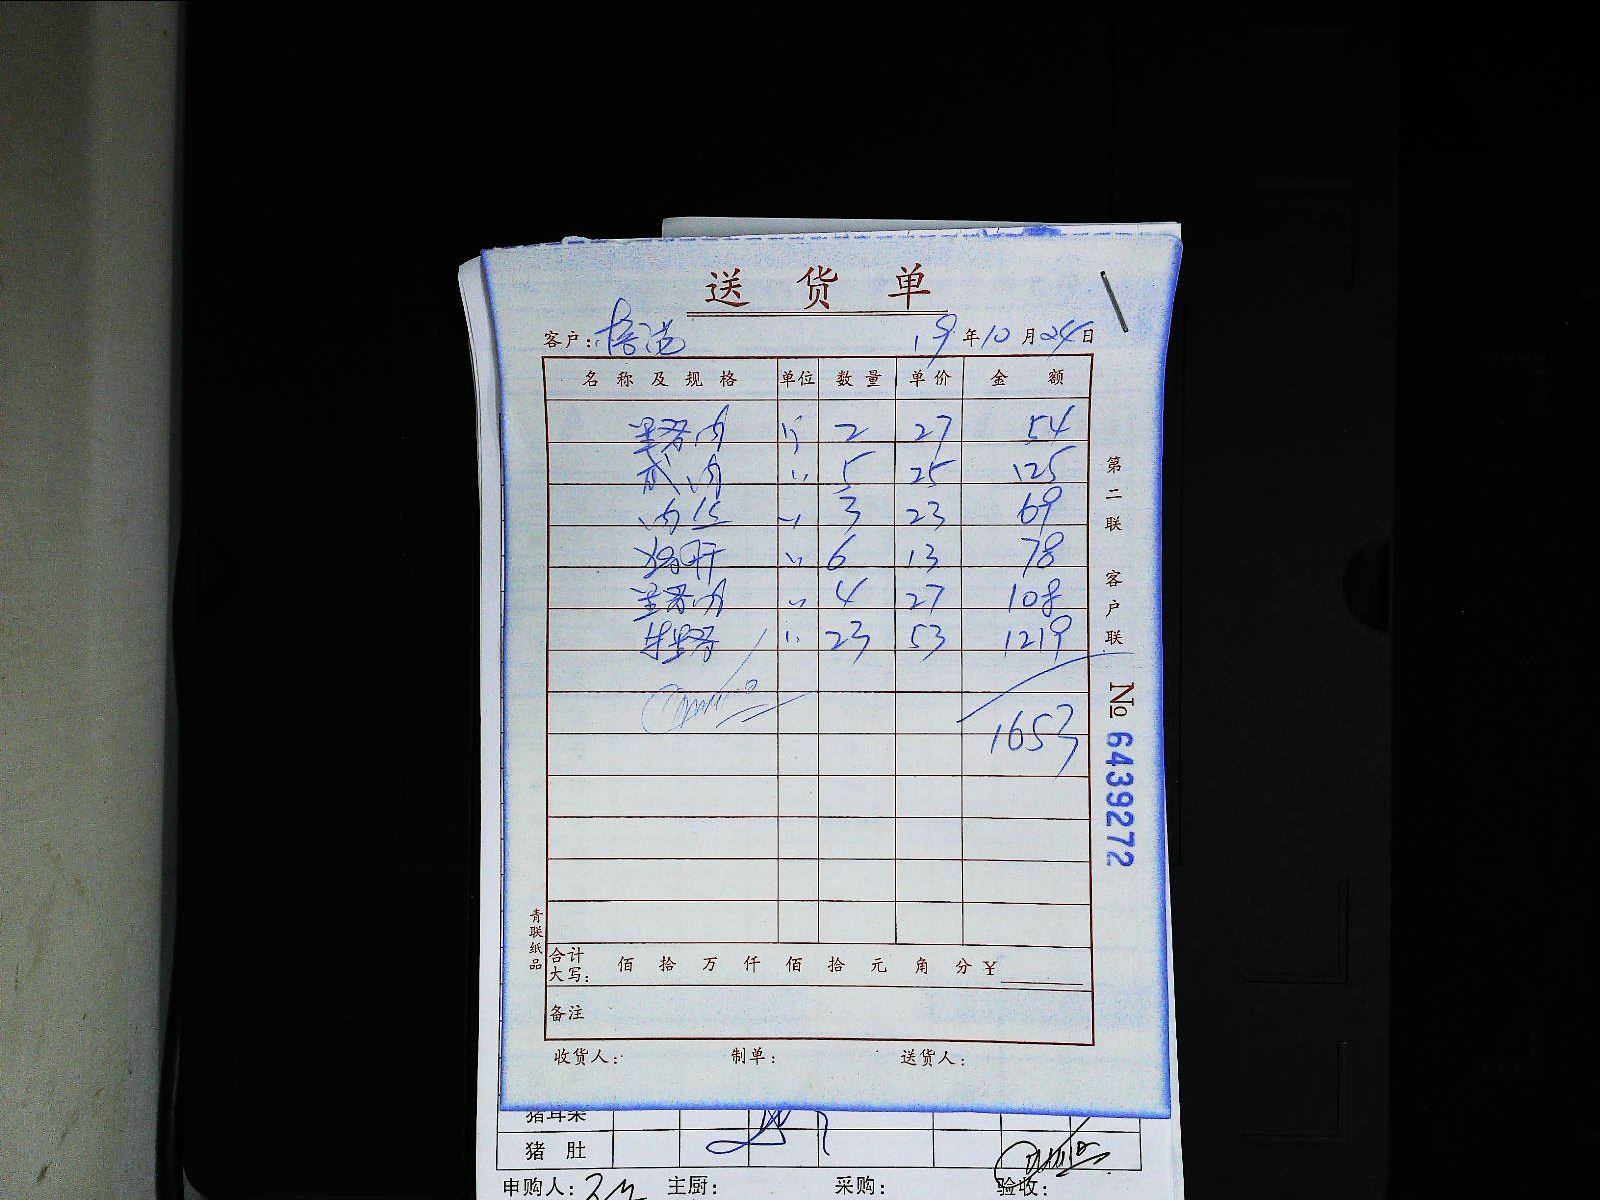 送 货 单
客户: 19年10月24日
名 称 及 规 格 单位 数 量 单 价 金 额
斤 2 27 54
肉 〃 5 25 125
肉丝 〃 3 23 69
猪肝 〃 6 13 78
〃 4 27 108
〃 23 53 1219
1653
第二联 客户联
№ 6439272
青联纸品
合计大写: 佰 拾 万 仟 佰 拾 元 角 分 ¥
备注
收货人: 制单: 送货人:
猪耳朵
猪 肚
申购人: 主厨: 采购: 验收: